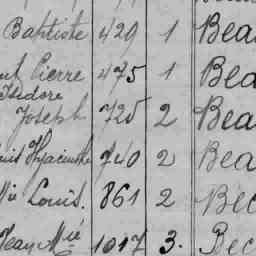 Baptiste 429 1 Bea
Pierre 475 1 Bea
Isidore
Joseph 725 2 Bea
Hyacinthe 740 2 Bea
Louis. 861 2 Bec
Jean Mie 1017 3. Bec